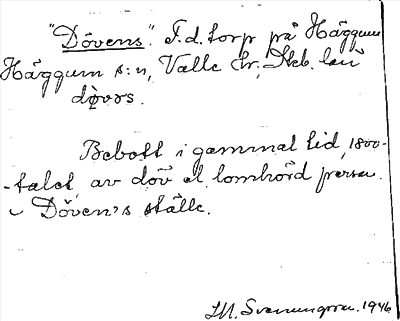 "Dövens". F.d. torp på Häggum
Häggum s:n, Valle hr, Skb. län
dövəs.
Bebott i gammal tid, 1800-
-talet av döv el. lomhörd person.
Döven's ställe.
Svenungsson. 1946